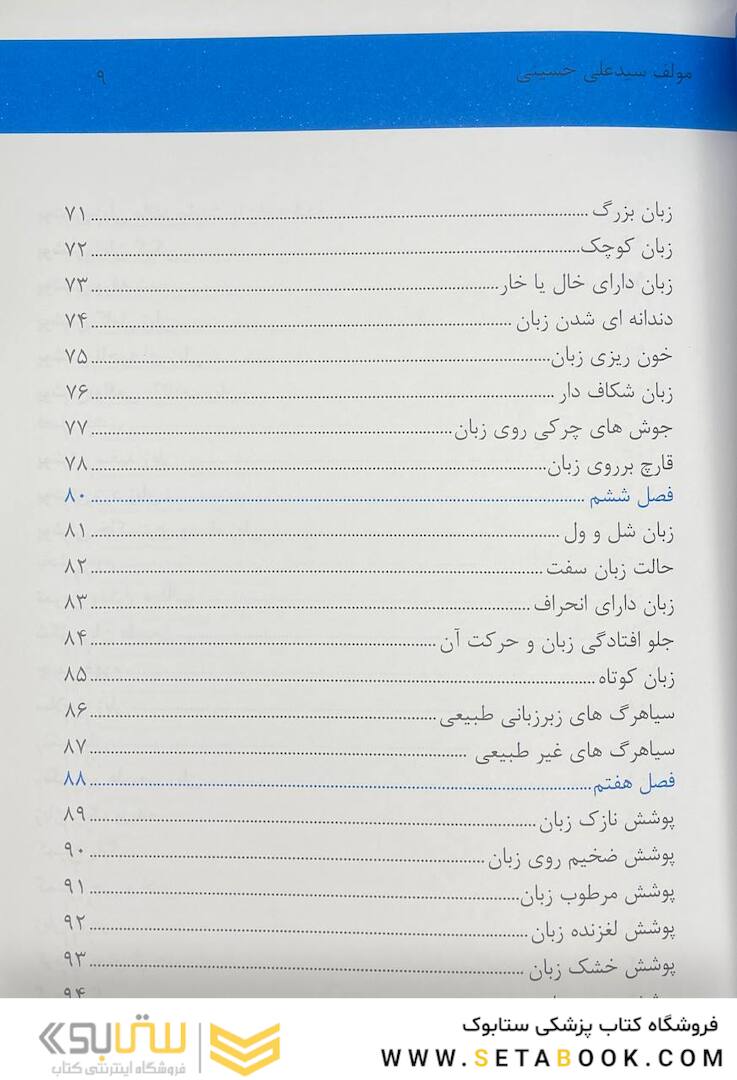 مولف سیدعلی حسینی ۹
زبان بزرگ ۷۱
زبان کوچک ۷۲
زبان دارای خال یا خار ۷۳
دندانه ای شدن زبان ۷۴
خون ریزی زبان ۷۵
زبان شکاف دار ۷۶
جوش های چرکی روی زبان ۷۷
قارچ برروی زبان ۷۸
فصل ششم ۸۰
زبان شل و ول ۸۱
حالت زبان سفت ۸۲
زبان دارای انحراف ۸۳
جلو افتادگی زبان و حرکت آن ۸۴
زبان کوتاه ۸۵
سیاهرگ های زیرزبانی طبیعی ۸۶
سیاهرگ های غیر طبیعی ۸۷
فصل هفتم ۸۸
پوشش نازک زبان ۸۹
پوشش ضخیم روی زبان ۹۰
پوشش مرطوب زبان ۹۱
پوشش لغزنده زبان ۹۲
پوشش خشک زبان ۹۳
۹۴
فروشگاه کتاب پزشکی ستابوک
WWW.SETABOOK.COM
ستابوک
فروشگاه اینترنتی کتاب